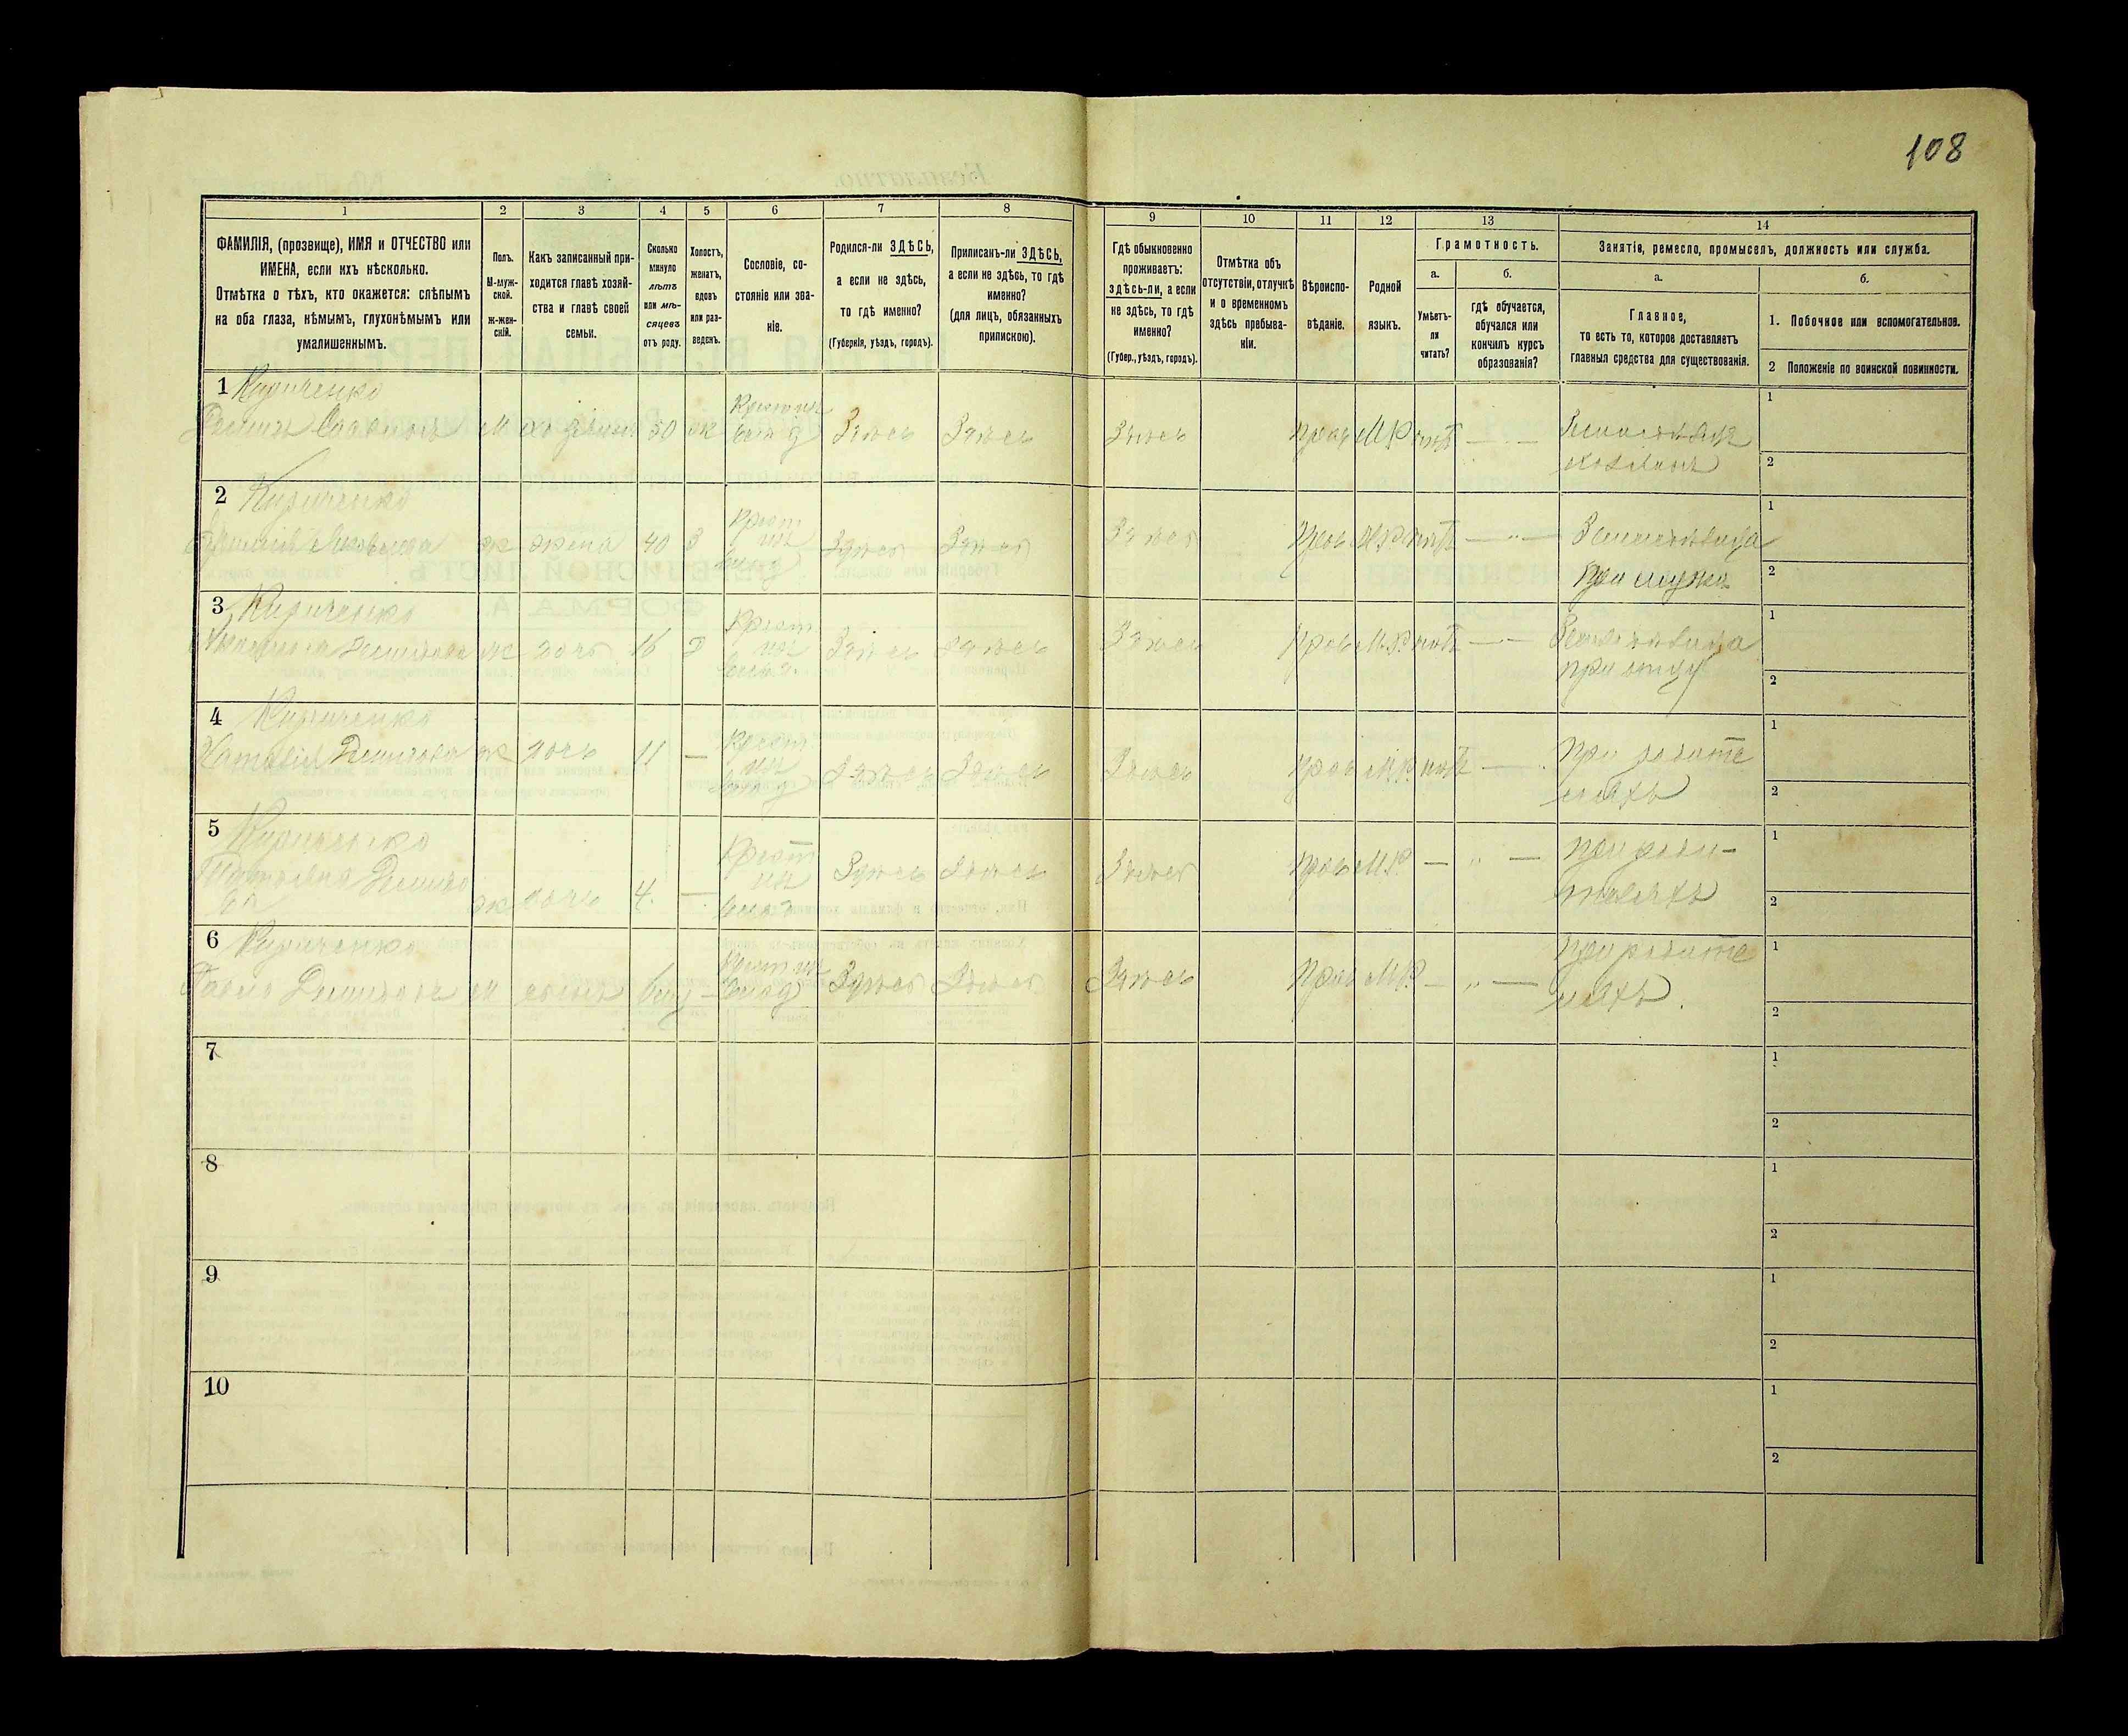 108
1 2 3 4 5 6 7 8 9 10 11 12 13 14
ФАМИЛІЯ, (прозвище), ИМЯ и ОТЧЕСТВО или
ИМЕНА, если ихъ нѣсколько.
Отмѣтка о тѣхъ, кто окажется: слѣпымъ
на оба глаза, нѣмымъ, глухонѣмымъ или
умалишеннымъ.
Полъ.
М-муж-
ской.
ж-жен-
скій.
Какъ записанный при-
ходится главѣ хозяй-
ства и главѣ своей
семьи.
Сколько
минуло
лѣтъ
или мѣ-
сяцевъ
отъ роду.
Холостъ,
женатъ,
вдовъ
или раз-
веденъ.
Сословіе, со-
стояніе или зва-
ніе.
Родился-ли ЗДѢСЬ,
а если не здѣсь,
то гдѣ именно?
(Губернія, уѣздъ, городъ).
Приписанъ-ли ЗДѢСЬ,
а если не здѣсь, то гдѣ
именно?
(для лицъ, обязанныхъ
припискою).
Гдѣ обыкновенно
проживаетъ:
здѣсь-ли, а если
не здѣсь, то гдѣ
именно?
(Губер., уѣздъ, городъ).
Отмѣтка объ
отсутствіи, отлучкѣ
и о временномъ
здѣсь пребыва-
ніи.
Вѣроиспо-
вѣданіе.
Родной
языкъ.
Грамотность.
а.
Умѣетъ-
ли
читать?
б.
гдѣ обучается,
обучался или
кончилъ курсъ
образованія?
Занятіе, ремесло, промыселъ, должность или служба.
а.
Главное,
то есть то, которое доставляетъ
главныя средства для существованія.
б.
1. Побочное или вспомогательное.
2 Положеніе по воинской повинности.
1 Кириченко
М хозяинъ 50 ж Здѣсь Здѣсь Здѣсь прав М.Р. нѣтъ — " —
1
2
2 Кириченко
Яковлева ж жена 40 З Здѣсь Здѣсь Здѣсь Прав М.Р. нѣтъ — " — Земледѣлица
при мужѣ
1
2
3 Кириченко
ж дочь 16 Д Здѣсь Здѣсь Здѣсь Прав М.Р. нѣтъ — — Земледѣлица
при отцу
1
2
4 Кириченко
Наталія Демидова ж дочь 11 — Здѣсь Здѣсь Здѣсь прав М.Р. нѣтъ — при родите
ляхъ
1
2
5 Кириченко
Татьяна Демидо
ва ж дочь 4. — Здѣсь Здѣсь Здѣсь прав М.Р. — " — при роди-
теляхъ
1
2
6 Кириченко
Павло Демидовъ М сынъ — Здѣсь Здѣсь Здѣсь Прав М.Р. — " — При родите
ляхъ.
1
2
7
1
2
8
1
2
9
1
2
10
1
2